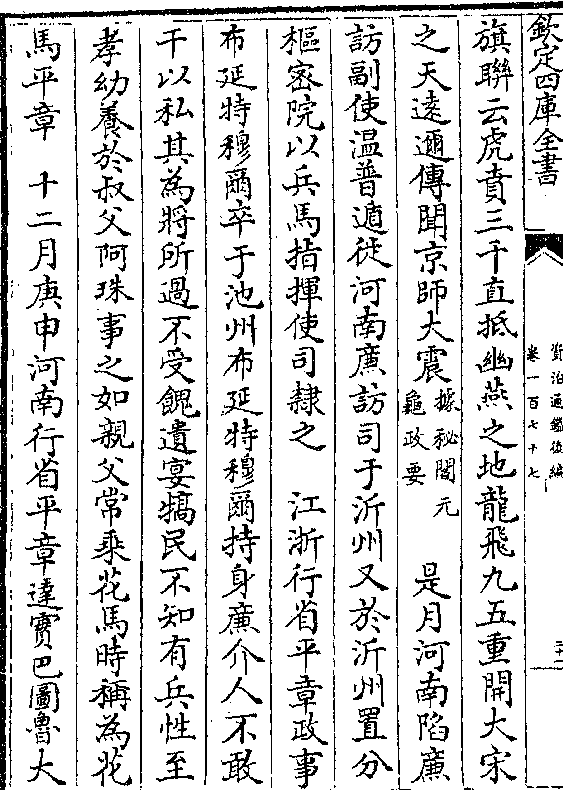 欽定四庫全書
資治通鑑後編
卷一百七十七
旗聯云虎賁三千直抵幽燕之地龍飛九五重開大宋
之天遠邇傳聞京師大震據秘閣元龜政要 是月河南陷廉
訪副使温普遁徙河南廉訪司于沂州又於沂州置分
樞密院以兵馬指揮使司隸之 江浙行省平章政事
布延特穆爾卒于池州布延特穆爾持身廉介人不敢
干以私其為將所過不受餽遺宴犒民不知有兵性至
孝幼養於叔父阿珠事之如親父常乘花馬時稱為花
馬平章 十二月庚申河南行省平章達實巴圖魯大